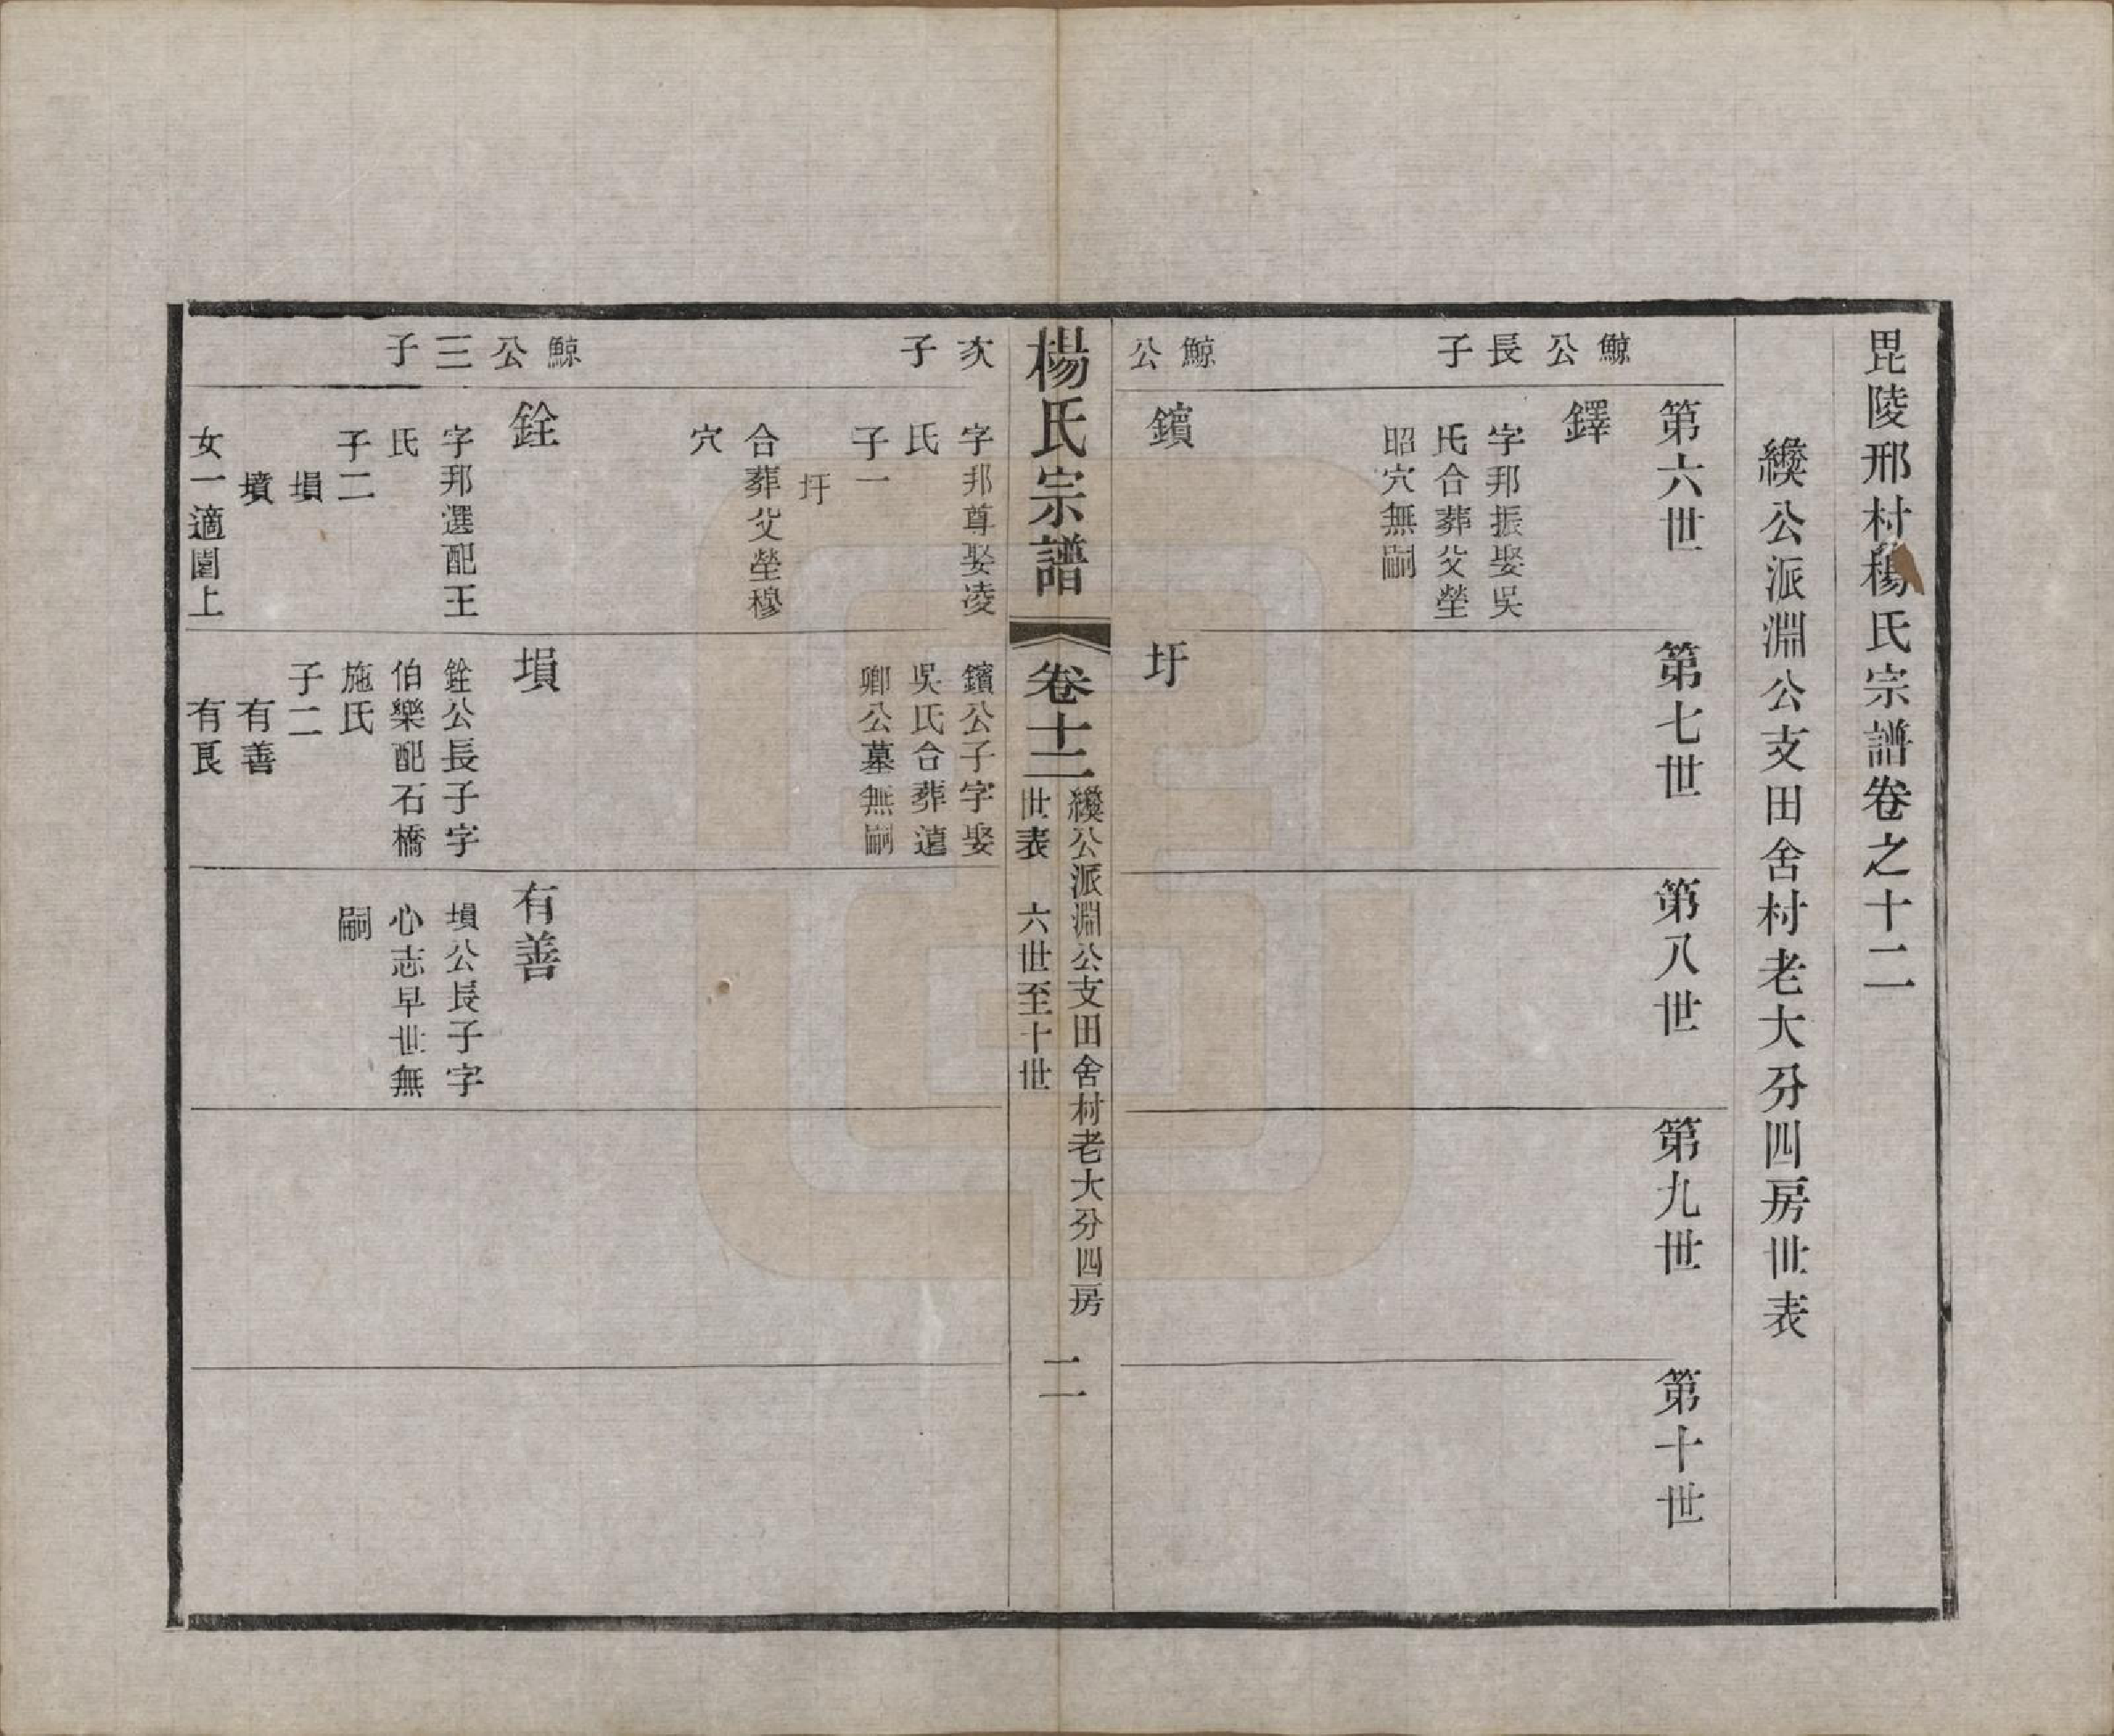 毘陵邢村楊氏宗譜卷之十二
纔公派淵公支田舍村老大分四房世表
第六世
第七世
第八世
第九世
第十世
鯨公長子
鐸
字邦振娶吳
氏合葬父塋
昭穴無嗣
鯨公
鑌
圩
楊氏宗譜
卷十二
纔公派淵公支田舍村老大分四房
世表 六世至十世
一
次子
字邦尊娶凌
氏
子一
圩
合葬父塋穆
穴
鑌公子字娶
吳氏合葬遠
卿公墓無嗣
鯨公三子
銓
字邦選配王
氏
子二
塤
墳
女一適圍上
塤
銓公長子字
伯樂配石橋
施氏
子二
有善
有良
有善
塤公長子字
心志早世無
嗣